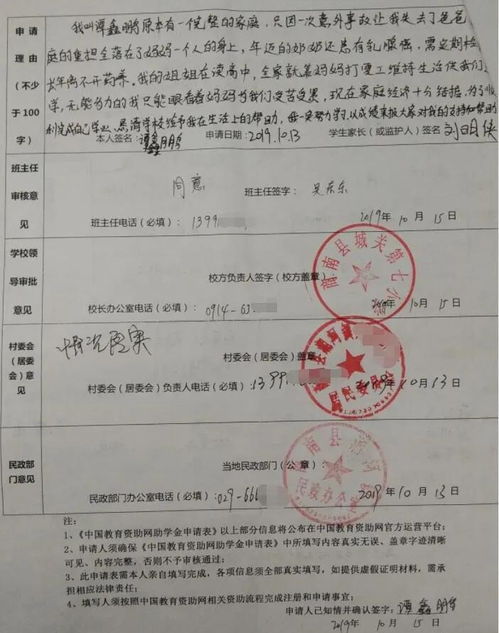 申请理由(不少于100字)
我叫谭鑫鹏原本有一个完整的家庭，只因一次意外事故让我失去了爸爸
庭的重担全落在了妈妈一个人的身上，年迈的奶奶还患有乳腺癌，需定期检
长年离不开药养。我的姐姐在读高中，全家就靠妈妈打零工维持生活供我们
学，无能为力的我只能眼看着妈妈为我们受苦受累，现在家庭经济十分结据，为了顺
利完成的学业，恳请学校给予我在生活上的帮助，我一定努力学习以成绩来报大家对我的支持和帮助
本人签名：谭鑫鹏 申请日期：2019.10.13 学生家长（或监护人）签名
班主任审核意见
同意
班主任签字：吴东东
班主任电话（必填）：1399 2019年10月15日
学校领导审批意见
校方负责人签字（校方盖章）
校长办公室电话（必填）：0914-63 10月15日
城关第七小学
村委会(居委会)意见
情况属实
村委会（居委会）盖章
村委会（居委会）负责人电话（必填）：1399 10月13
民政部门意见
当地民政部门（公章）
民政部门办公室电话（必填）：029-666 2019年10月13日
注：
1、《中国教育资助网助学金申请表》以上部分信息将公布在中国教育资助网官方运营平台；
2、申请人须确保《中国教育资助网助学金申请表》中所填写内容真实无误、盖章字迹清晰
可见、内容完整，否则不予审核通过；
3、此申请需本人亲自填写完成，各项信息须全部真实填写，如提供虚假证明材料，需承
担相应法律责任；
4、填写人须按照中国教育资助网相关资助流程完成注册和申请事宜；
申请人已知情并确认签字：谭鑫鹏
2019年10月15日